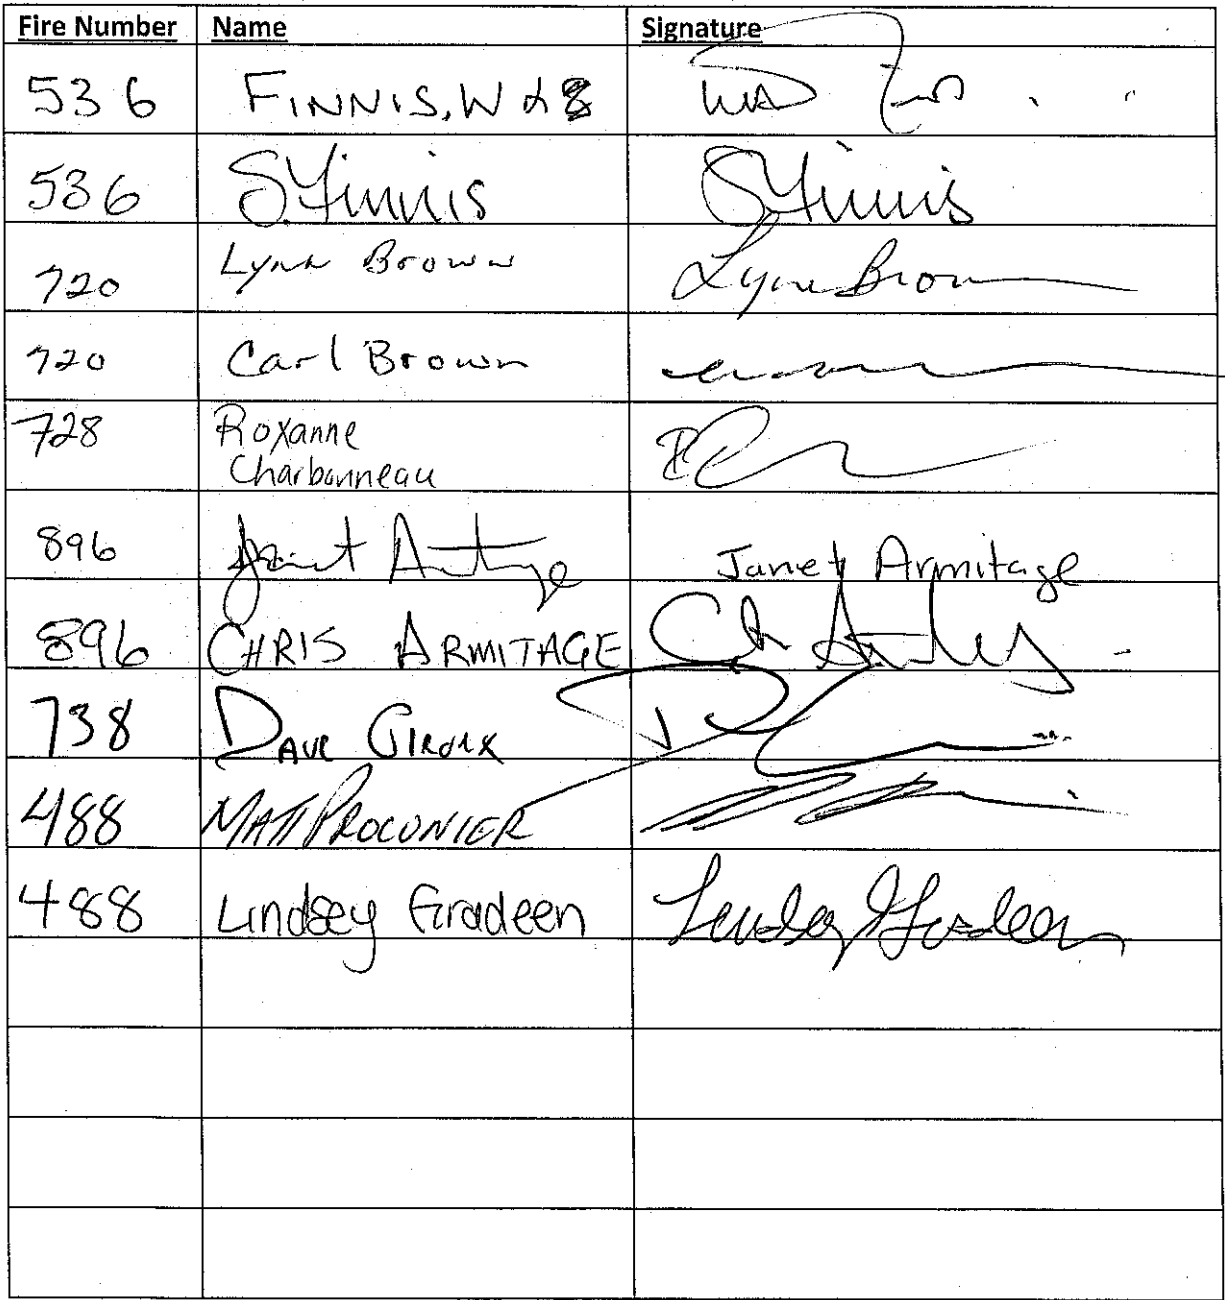 Fire Number Name Signature
536 FINNIS, W & S
536 S. Finnis S Finnis
720 Lynn Brown Lynn Brown
720 Carl Brown
728 Roxanne
Charbonneau
896 Janet Armitage Janet Armitage
896 CHRIS ARMITAGE
738 DAVE GIROUX
488 MATT PROCUNIER
488 Lindsey Gradeen Lindsey Gradeen